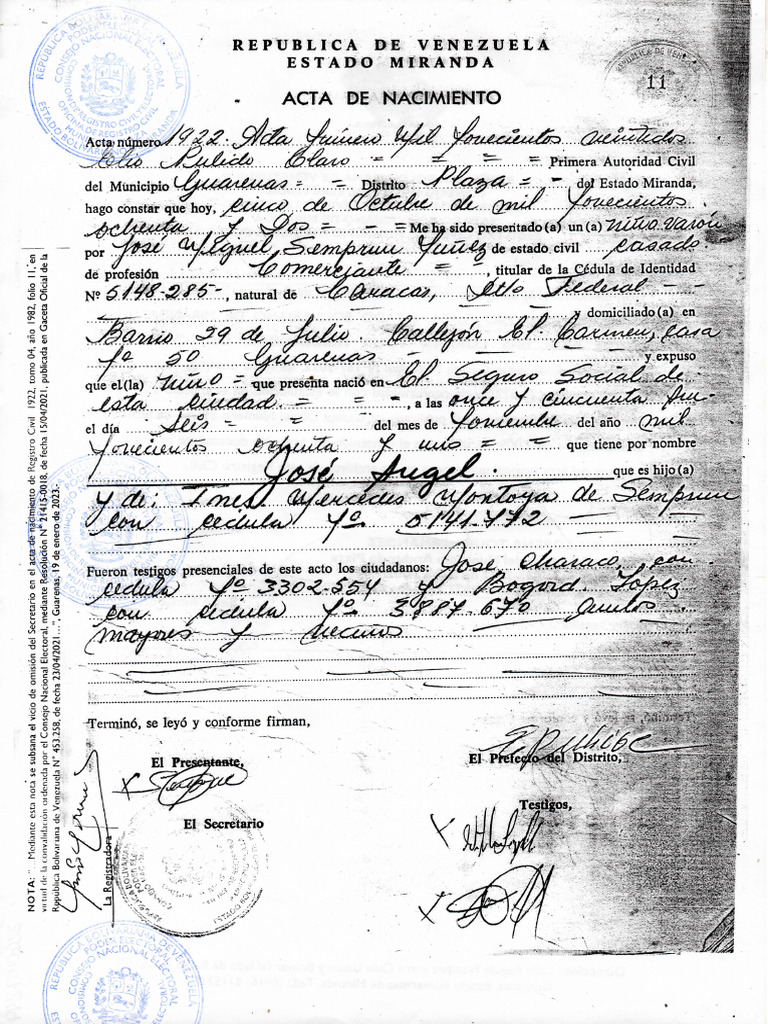 REPUBLICA DE VENEZUELA
ESTADO MIRANDA
11
ACTA DE NACIMIENTO
Acta número 1922. Acta Número Mil Novecientos veintidos
Elio Pulido Claro = = = = Primera Autoridad Civil
del Municipio Guarenas = = Distrito Plaza = = del Estado Miranda,
hago constar que hoy, cinco de Octubre de mil novecientos
ochenta y Dos = = = Me ha sido presentado (a) un (a) niño varón
por José Miguel Semprun Nuñez de estado civil casado
de profesión Comerciante = =, titular de la Cédula de Identidad
Nº 5148-285-, natural de Caracas, Dtto Federal - -
y domiciliado (a) en
Barrio 29 de Julio. Callejón El Carmen, casa
Nº 50 Guarenas y expuso
que el (la) niño = que presenta nació en El Seguro Social de
esta ciudad. = = -, a las once y cincuenta
el día Seis = = del mes de Noviembre del año mil
novecientos ochenta y uno = = que tiene por nombre
José Angel. que es hijo (a)
y de: Ines Mercedes Montoya de Semprun
con cedula Nº 5141.772
Fueron testigos presenciales de este acto los ciudadanos: José Characo, con
cedula Nº 3302-554 y Bogord López
con cedula Nº 3.887.670 Ambos
mayores y vecinos
Terminó, se leyó y conforme firman,
El Presentante,
El Prefecto del Distrito,
Testigos,
El Secretario
La Registradora
NOTA: "... Mediante esta nota se subsana el vicio de omisión del Secretario en el acta de nacimiento de Registro Civil 1922, tomo 04, año 1982, folio 11, en
virtud de la convalidación ordenada por el Consejo Nacional Electoral, mediante Resolución N° 21415-0018, de fecha 15/04/2021, publicada en Gaceta Oficial de la
República Bolivariana de Venezuela N° 453.258, de fecha 23/04/2021...", Guarenas, 19 de enero de 2023.-